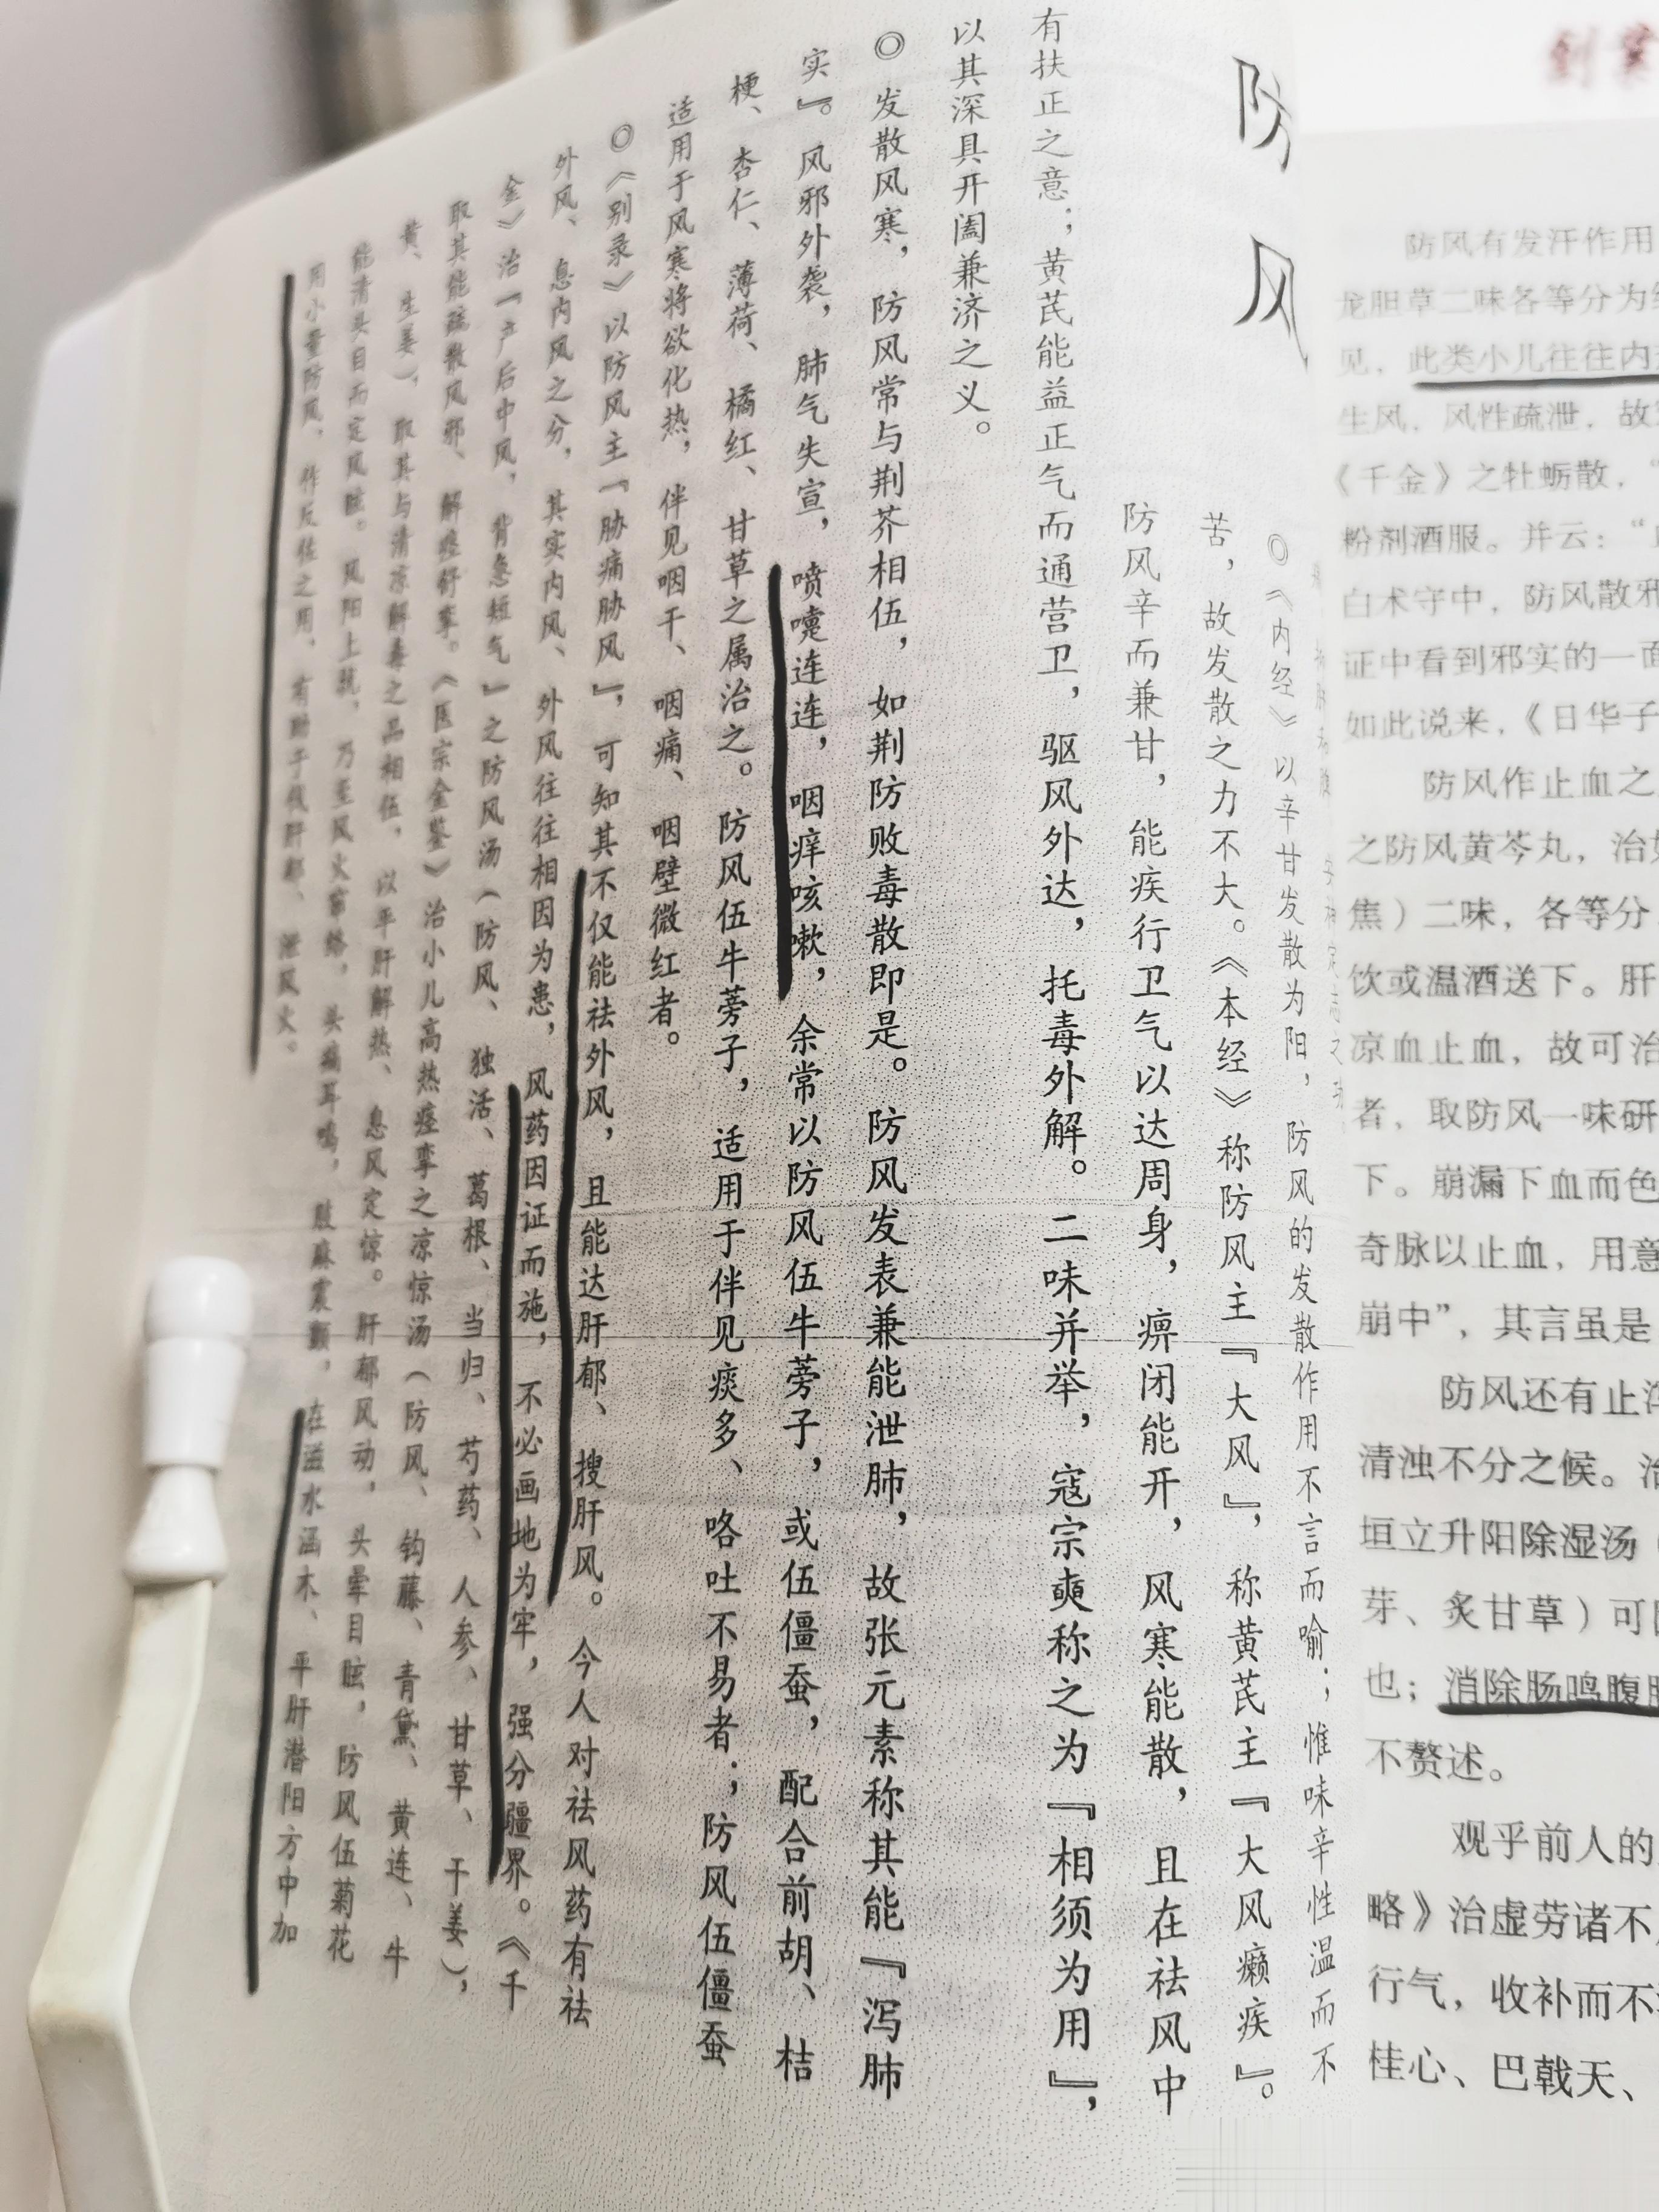 防风
◎《内经》以辛甘发散为阳，防风的发散作用不言而喻；惟味辛性温而不
苦，故发散之力不大。《本经》称防风主『大风』，称黄芪主『大风癞疾』。
防风辛而兼甘，能疾行卫气以达周身，痹闭能开，风寒能散，且在祛风中
有扶正之意；黄芪能益正气而通营卫，驱风外达，托毒外解。二味并举，寇宗奭称之为『相须为用』，
以其深具开阖兼济之义。
◎发散风寒，防风常与荆芥相伍，如荆防败毒散即是。防风发表兼能泄肺，故张元素称其能『泻肺
实』。风邪外袭，肺气失宣，喷嚏连连，咽痒咳嗽，余常以防风伍牛蒡子，或伍僵蚕，配合前胡、桔
梗、杏仁、薄荷、橘红、甘草之属治之。防风伍牛蒡子，适用于伴见痰多、咯吐不易者；防风伍僵蚕
适用于风寒将欲化热，伴见咽干、咽痛、咽壁微红者。
◎《别录》以防风主『胁痛胁风』，可知其不仅能祛外风，且能达肝郁、搜肝风。今人对祛风药有祛
外风、息内风之分，其实内风、外风往往相因为患，风药因证而施，不必画地为牢，强分疆界。《千
金》治『产后中风，背急短气』之防风汤（防风、独活、葛根、当归、芍药、人参、甘草、干姜），
取其能疏散风邪、解痉舒挛。《医宗金鉴》治小儿高热痉挛之凉惊汤（防风、钩藤、青黛、黄连、牛
黄、生姜），取其与清凉解毒之品相伍，以平肝解热、息风定惊。肝郁风动，头晕目眩，防风伍菊花
能清头目而定风眩。风阳上扰，乃至风火窜络，头痛耳鸣，肢麻震颤，在滋水涵木、平肝潜阳方中加
用小量防风，作反佐之用，有助于伐肝郁、泄风火。
防风有发汗作用
龙胆草二味各等分为
见，此类小儿往往内
生风，风性疏泄，故
《千金》之牡蛎散，“
粉剂酒服。并云：“
白术守中，防风散邪
证中看到邪实的一面
如此说来，《日华子
防风作止血之
之防风黄芩丸，治
焦）二味，各等分
饮或温酒送下。肝
凉血止血，故可治
者，取防风一味研
下。崩漏下血而色
奇脉以止血，用意
崩中”，其言虽是
防风还有止泻
清浊不分之候。治
垣立升阳除湿汤
芽、炙甘草）可
也；消除肠鸣腹
不赘述。
观乎前人的
略》治虚劳诸不
行气，收补而不
桂心、巴戟天、